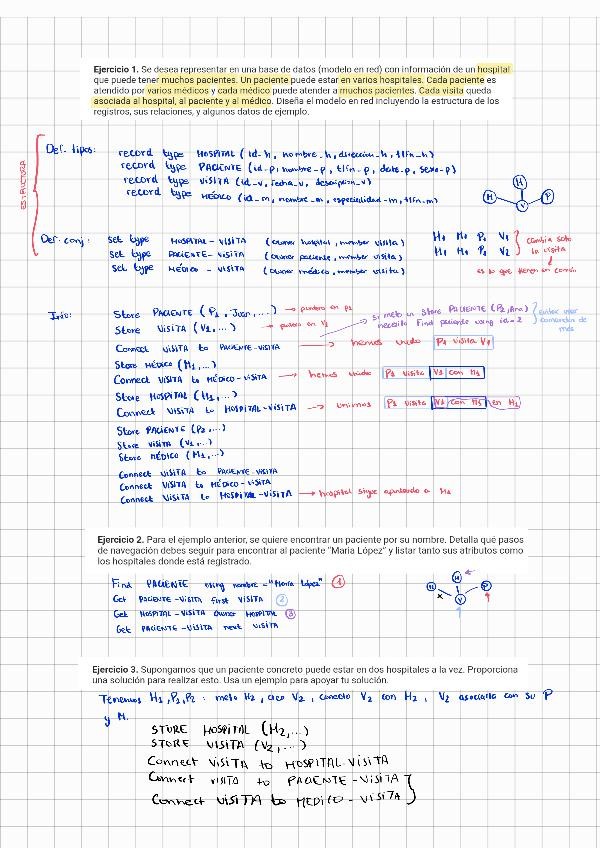 Ejercicio 1. Se desea representar en una base de datos (modelo en red) con información de un hospital
que puede tener muchos pacientes. Un paciente puede estar en varios hospitales. Cada paciente es
atendido por varios médicos y cada médico puede atender a muchos pacientes. Cada visita queda
asociada al hospital, al paciente y al médico. Diseña el modelo en red incluyendo la estructura de los
registros, sus relaciones, y algunos datos de ejemplo.
ESTRUCTURA
Def. tipos: record type HOSPITAL (id-h, nombre_h, dirección_h, tlfn_h)
record type PACIENTE (id-p, nombre-p, tlfn-p, date-p, sexo-p)
record type VISITA (id_v, fecha_v, descripción_v)
record type MÉDICO (id_m, nombre_m, especialidad-m, tlfn_m)
H
M V P
Def. conj: set type HOSPITAL-VISITA (owner hospital, member visita)
set type PACIENTE-VISITA (owner paciente, member visita)
set type MÉDICO - VISITA (owner médico, member visita)
H1 M1 P1 V1
H1 M1 P1 V2
cambia solo
la visita
es lo que tienen en común
Info: Store PACIENTE (P1, Juan, ...) → puntero en P1
Store VISITA (V1, ...) → puntero en V1
si meto un Store PACIENTE (P2, Ana)
necesito Find paciente using id=2
evitar usar
comandos de
más
Connect VISITA to PACIENTE-VISITA → hemos unido P1 visita V1
Store MÉDICO (M1, ...)
Connect VISITA to MÉDICO-VISITA → hemos unido P1 visita V1 con M1
Store HOSPITAL (H1, ...)
Connect VISITA to HOSPITAL-VISITA → unimos P1 visita V1 con M1 en H1
Store PACIENTE (P2, ...)
Store VISITA (V1, ...)
Store MÉDICO (M1, ...)
Connect VISITA to PACIENTE-VISITA
Connect VISITA to MÉDICO-VISITA
Connect VISITA to HOSPITAL-VISITA → hospital sigue apuntando a H1
Ejercicio 2. Para el ejemplo anterior, se quiere encontrar un paciente por su nombre. Detalla qué pasos
de navegación debes seguir para encontrar al paciente "Maria López" y listar tanto sus atributos como
los hospitales donde está registrado.
Find PACIENTE using nombre="María López" 1
Get PACIENTE-VISITA first VISITA 2
Get HOSPITAL-VISITA owner HOSPITAL 3
Get PACIENTE-VISITA next VISITA
H
M P
x V
Ejercicio 3. Supongamos que un paciente concreto puede estar en dos hospitales a la vez. Proporciona
una solución para realizar esto. Usa un ejemplo para apoyar tu solución.
Tenemos H1, P1, P2 : meto H2, creo V2, conecto V2 con H2, V2 asociarla con su P
y M.
STORE HOSPITAL (H2, ...)
STORE VISITA (V2, ...)
Connect VISITA to HOSPITAL-VISITA
Connect VISITA to PACIENTE-VISITA
Connect VISITA to MEDICO-VISITA